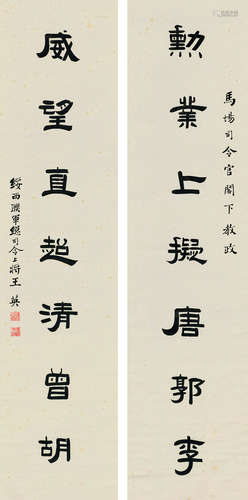 馬場司令官閣下教政
勲業上擬唐郭李
威望直超清曾胡
綏西聯軍總司令上將王英